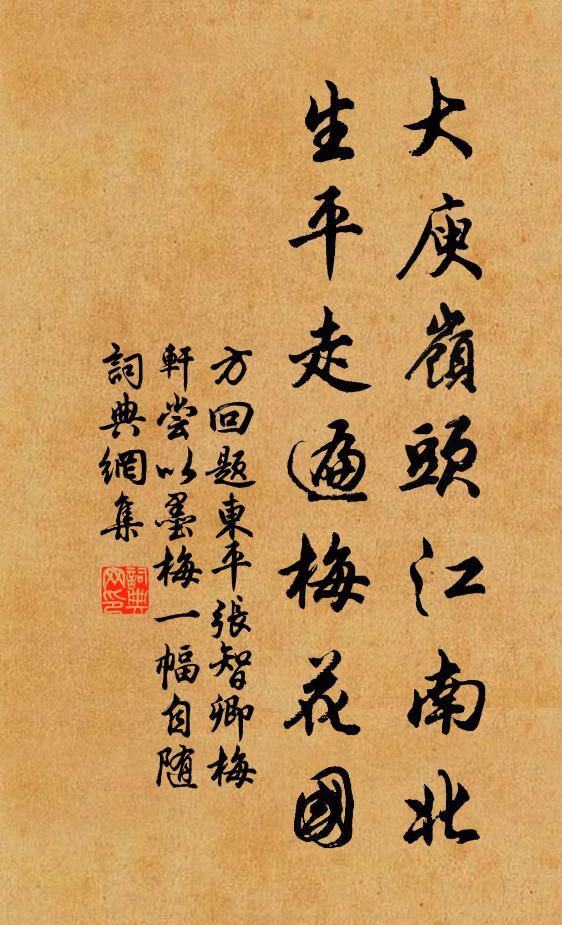 大庾嶺頭江南北
生平走遍梅花國
方回題東平張智卿梅
軒嘗以墨梅一幅自随
詞典網集
詞典
网印